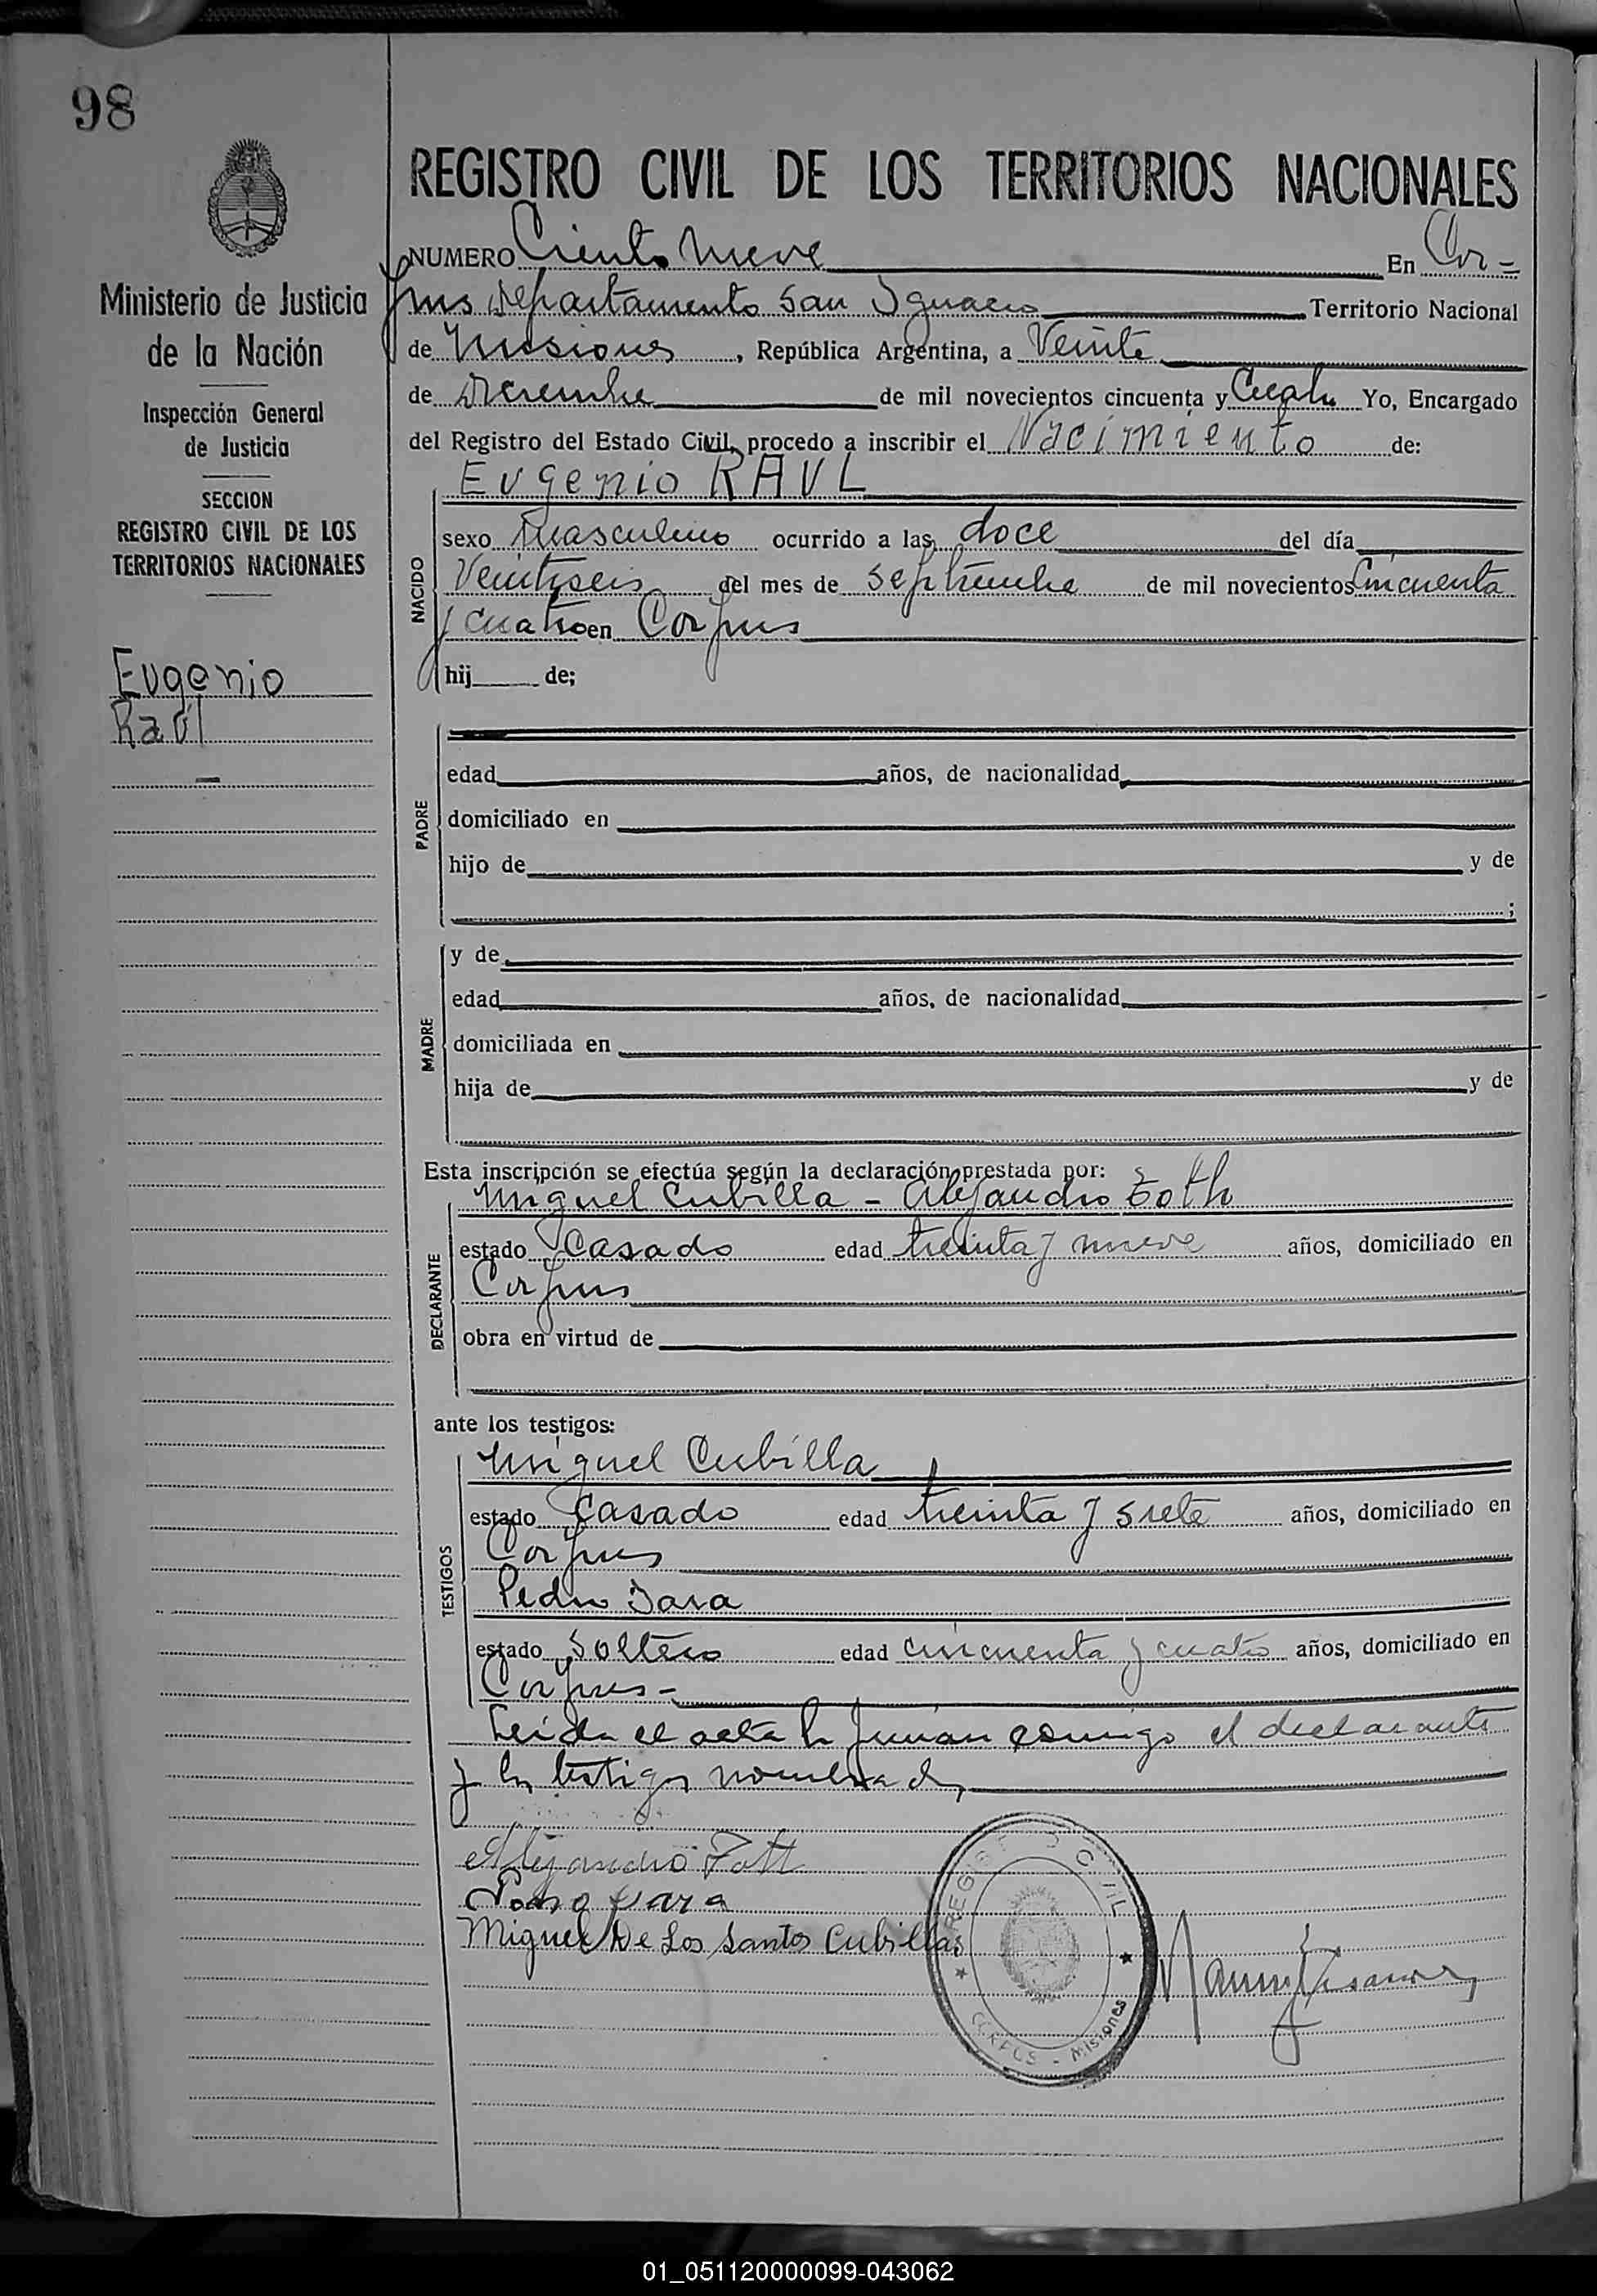 98
REGISTRO CIVIL DE LOS TERRITORIOS NACIONALES
Ministerio de Justicia
de la Nación
Inspección General
de Justicia
SECCION
REGISTRO CIVIL DE LOS
TERRITORIOS NACIONALES
Eugenio
Raúl
NUMERO Ciento Nueve En Cor=
pus Departamento San Ignacio Territorio Nacional
de Misiones, República Argentina, a Veinte
de Diciembre de mil novecientos cincuenta y Cuatro Yo, Encargado
del Registro del Estado Civil, procedo a inscribir el Nacimiento de:
Eugenio RAUL
NACIDO
sexo Masculino ocurrido a las doce del día
Veintiseis del mes de Septiembre de mil novecientos Cincuenta
y cuatro en Corpus
hij de;
PADRE
edad años, de nacionalidad
domiciliado en
hijo de y de
;
MADRE
y de
edad años, de nacionalidad
domiciliada en
hija de y de
Esta inscripción se efectúa según la declaración prestada por:
DECLARANTE
Miguel Cubilla - Alejandro Toth
estado Casado edad treinta y nueve años, domiciliado en
Corpus
obra en virtud de
ante los testigos:
TESTIGOS
Miguel Cubilla
estado Casado edad treinta y siete años, domiciliado en
Corpus
Pedro Jara
estado Soltero edad cincuenta y cuatro años, domiciliado en
Corpus-
Leida el acta la firman conmigo el declarante
y los testigos nombrados
Alejandro Tott
Jara
Miguel De Los Santos Cubillas
REGIST CIVIL
CORPUS - Misiones
01_051120000099-043062